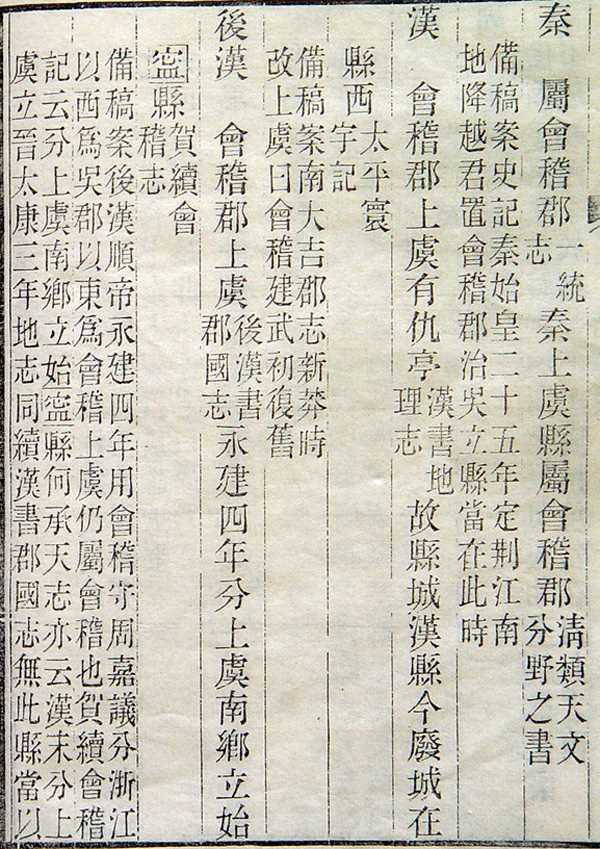 秦　屬會稽郡一統志秦上虞縣屬會稽郡清類天文分野之書
備稿案史記秦始皇二十五年定荆江南
地降越君置會稽郡治吳立縣當在此時
漢　會稽郡上虞有仇亭漢書地理志故縣城漢縣今廢城在
縣西太平寰宇記
備稿案南大吉郡志新莽時
改上虞曰會稽建武初復舊
後漢　會稽郡上虞後漢書郡國志永建四年分上虞南鄉立始
寍縣賀續會稽志
備稿案後漢順帝永建四年用會稽守周嘉議分浙江
以西爲吳郡以東爲會稽上虞仍屬會稽也賀續會稽
記云分上虞南鄉立始寍縣何承天志亦云漢末分上
虞立晉太康三年地志同續漢書郡國志無此縣當以